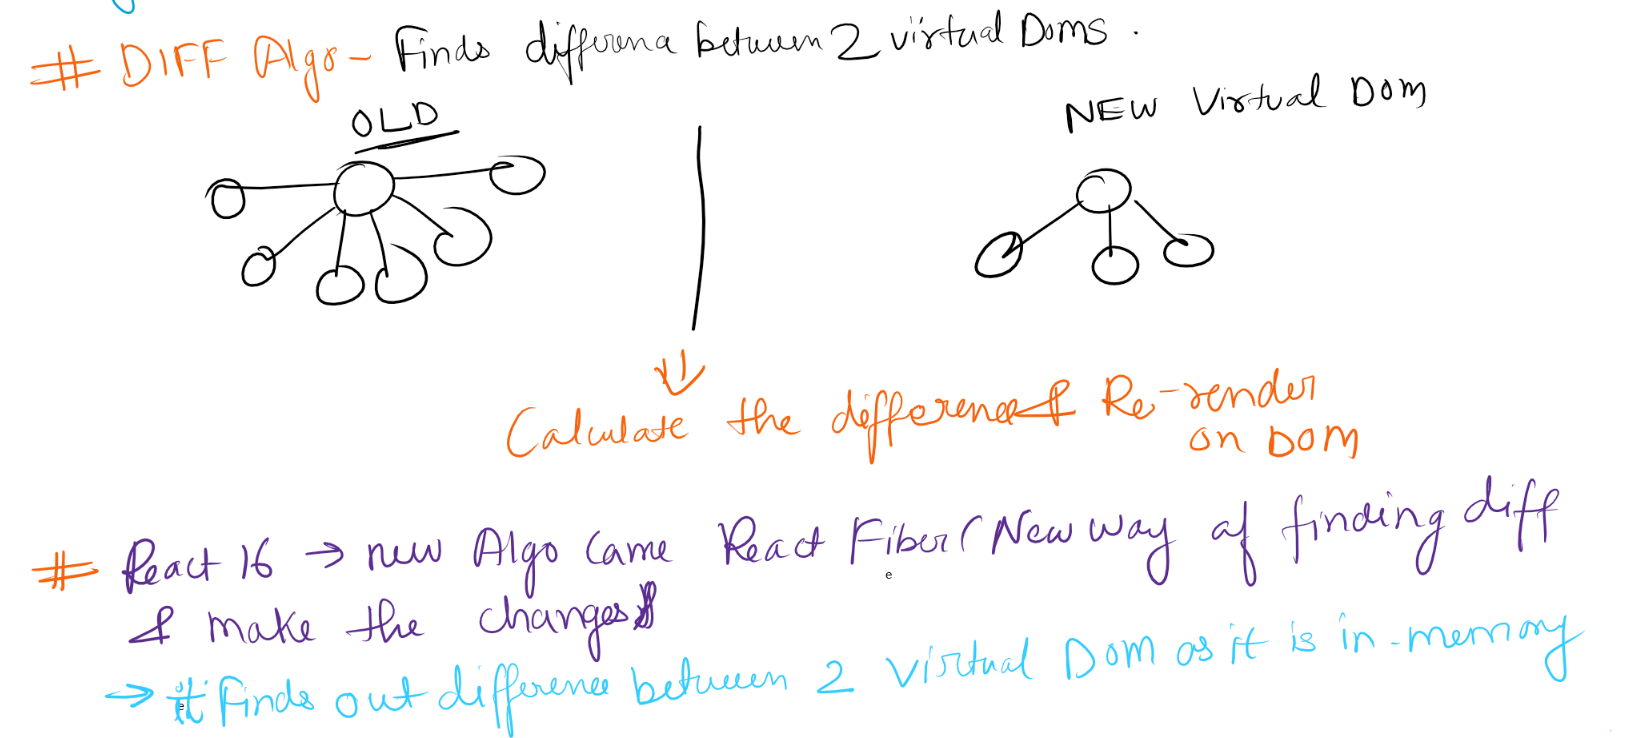 # DIFF Algo - Finds difference between 2 virtual Doms.
OLD
NEW Virtual DOM
Calculate the difference & Re-render
on DOM
# React 16 → new Algo Came React Fiber (New way of finding diff
e
& make the changes
→ it finds out difference between 2 Virtual Dom as it is in-memory
e